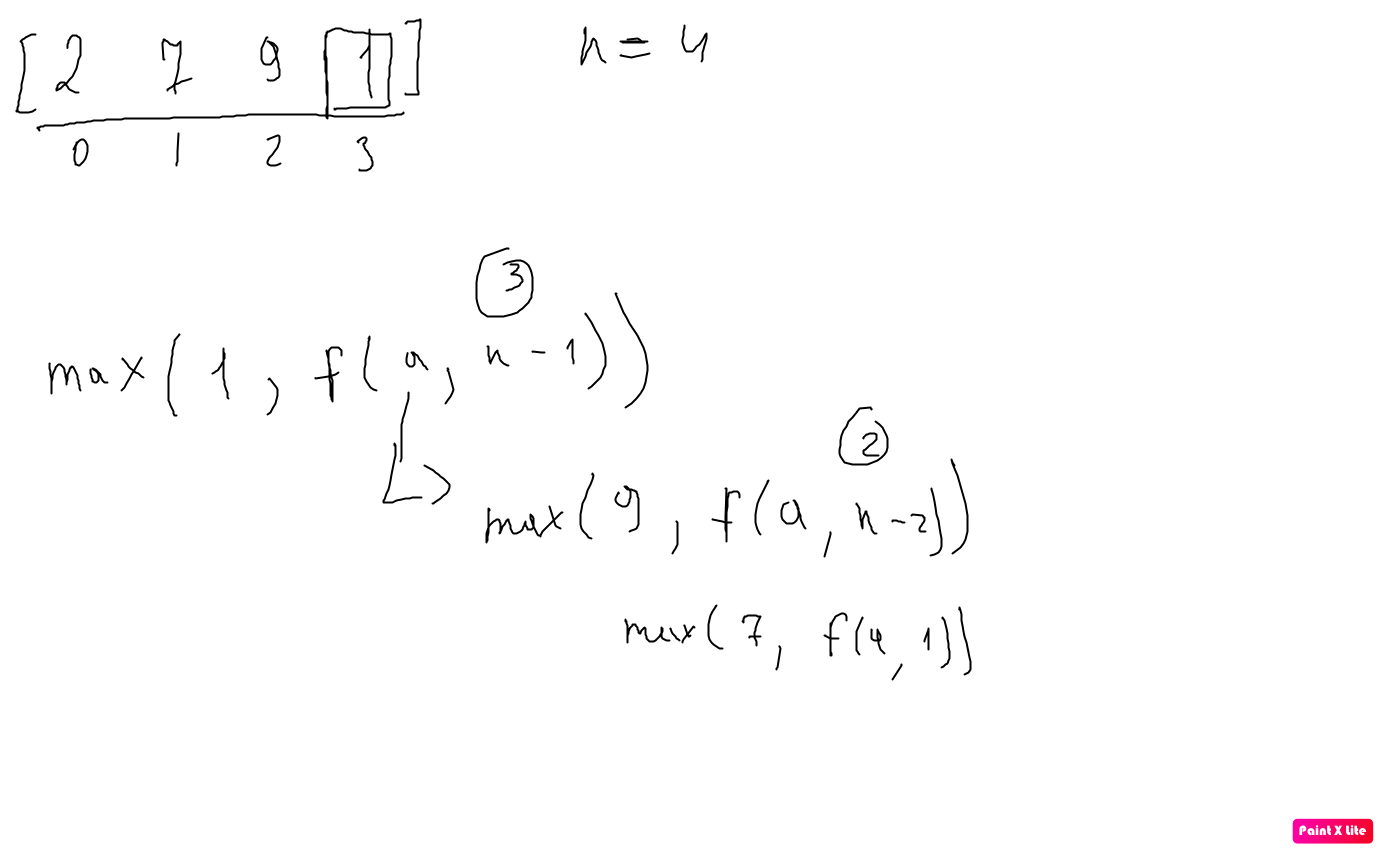 [2 7 9 1] n = 4
0 1 2 3
3
max(1, f(a, n-1))
2
max(9, f(a, n-2))
max(7, f(4, 1))
Paint X Lite